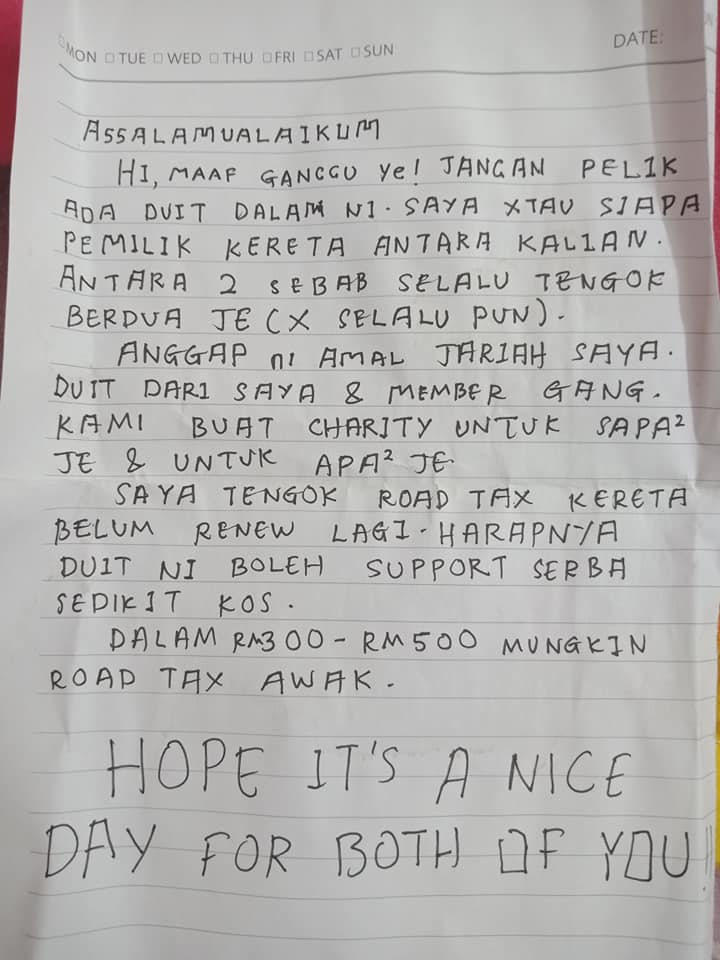 □MON □TUE □WED □THU □FRI □SAT □SUN
DATE:
ASSALAMUALAIKUM
HI, MAAF GANGGU Ye! JANGAN PELIK
ADA DUIT DALAM NI. SAYA XTAU SIAPA
PEMILIK KERETA ANTARA KALIAN.
ANTARA 2 SEBAB SELALU TENGOK
BERDUA JE (X SELALU PUN).
ANGGAP ni AMAL JARIAH SAYA.
DUIT DARI SAYA & MEMBER GANG.
KAMI BUAT CHARITY UNTUK SAPA²
JE & UNTUK APA² JE
SAYA TENGOK ROAD TAX KERETA
BELUM RENEW LAGI. HARAPNYA
DUIT NI BOLEH SUPPORT SERBA
SEDIKIT KOS.
DALAM RM300 - RM500 MUNGKIN
ROAD TAX AWAK.
HOPE IT'S A NICE
DAY FOR BOTH OF YOU!